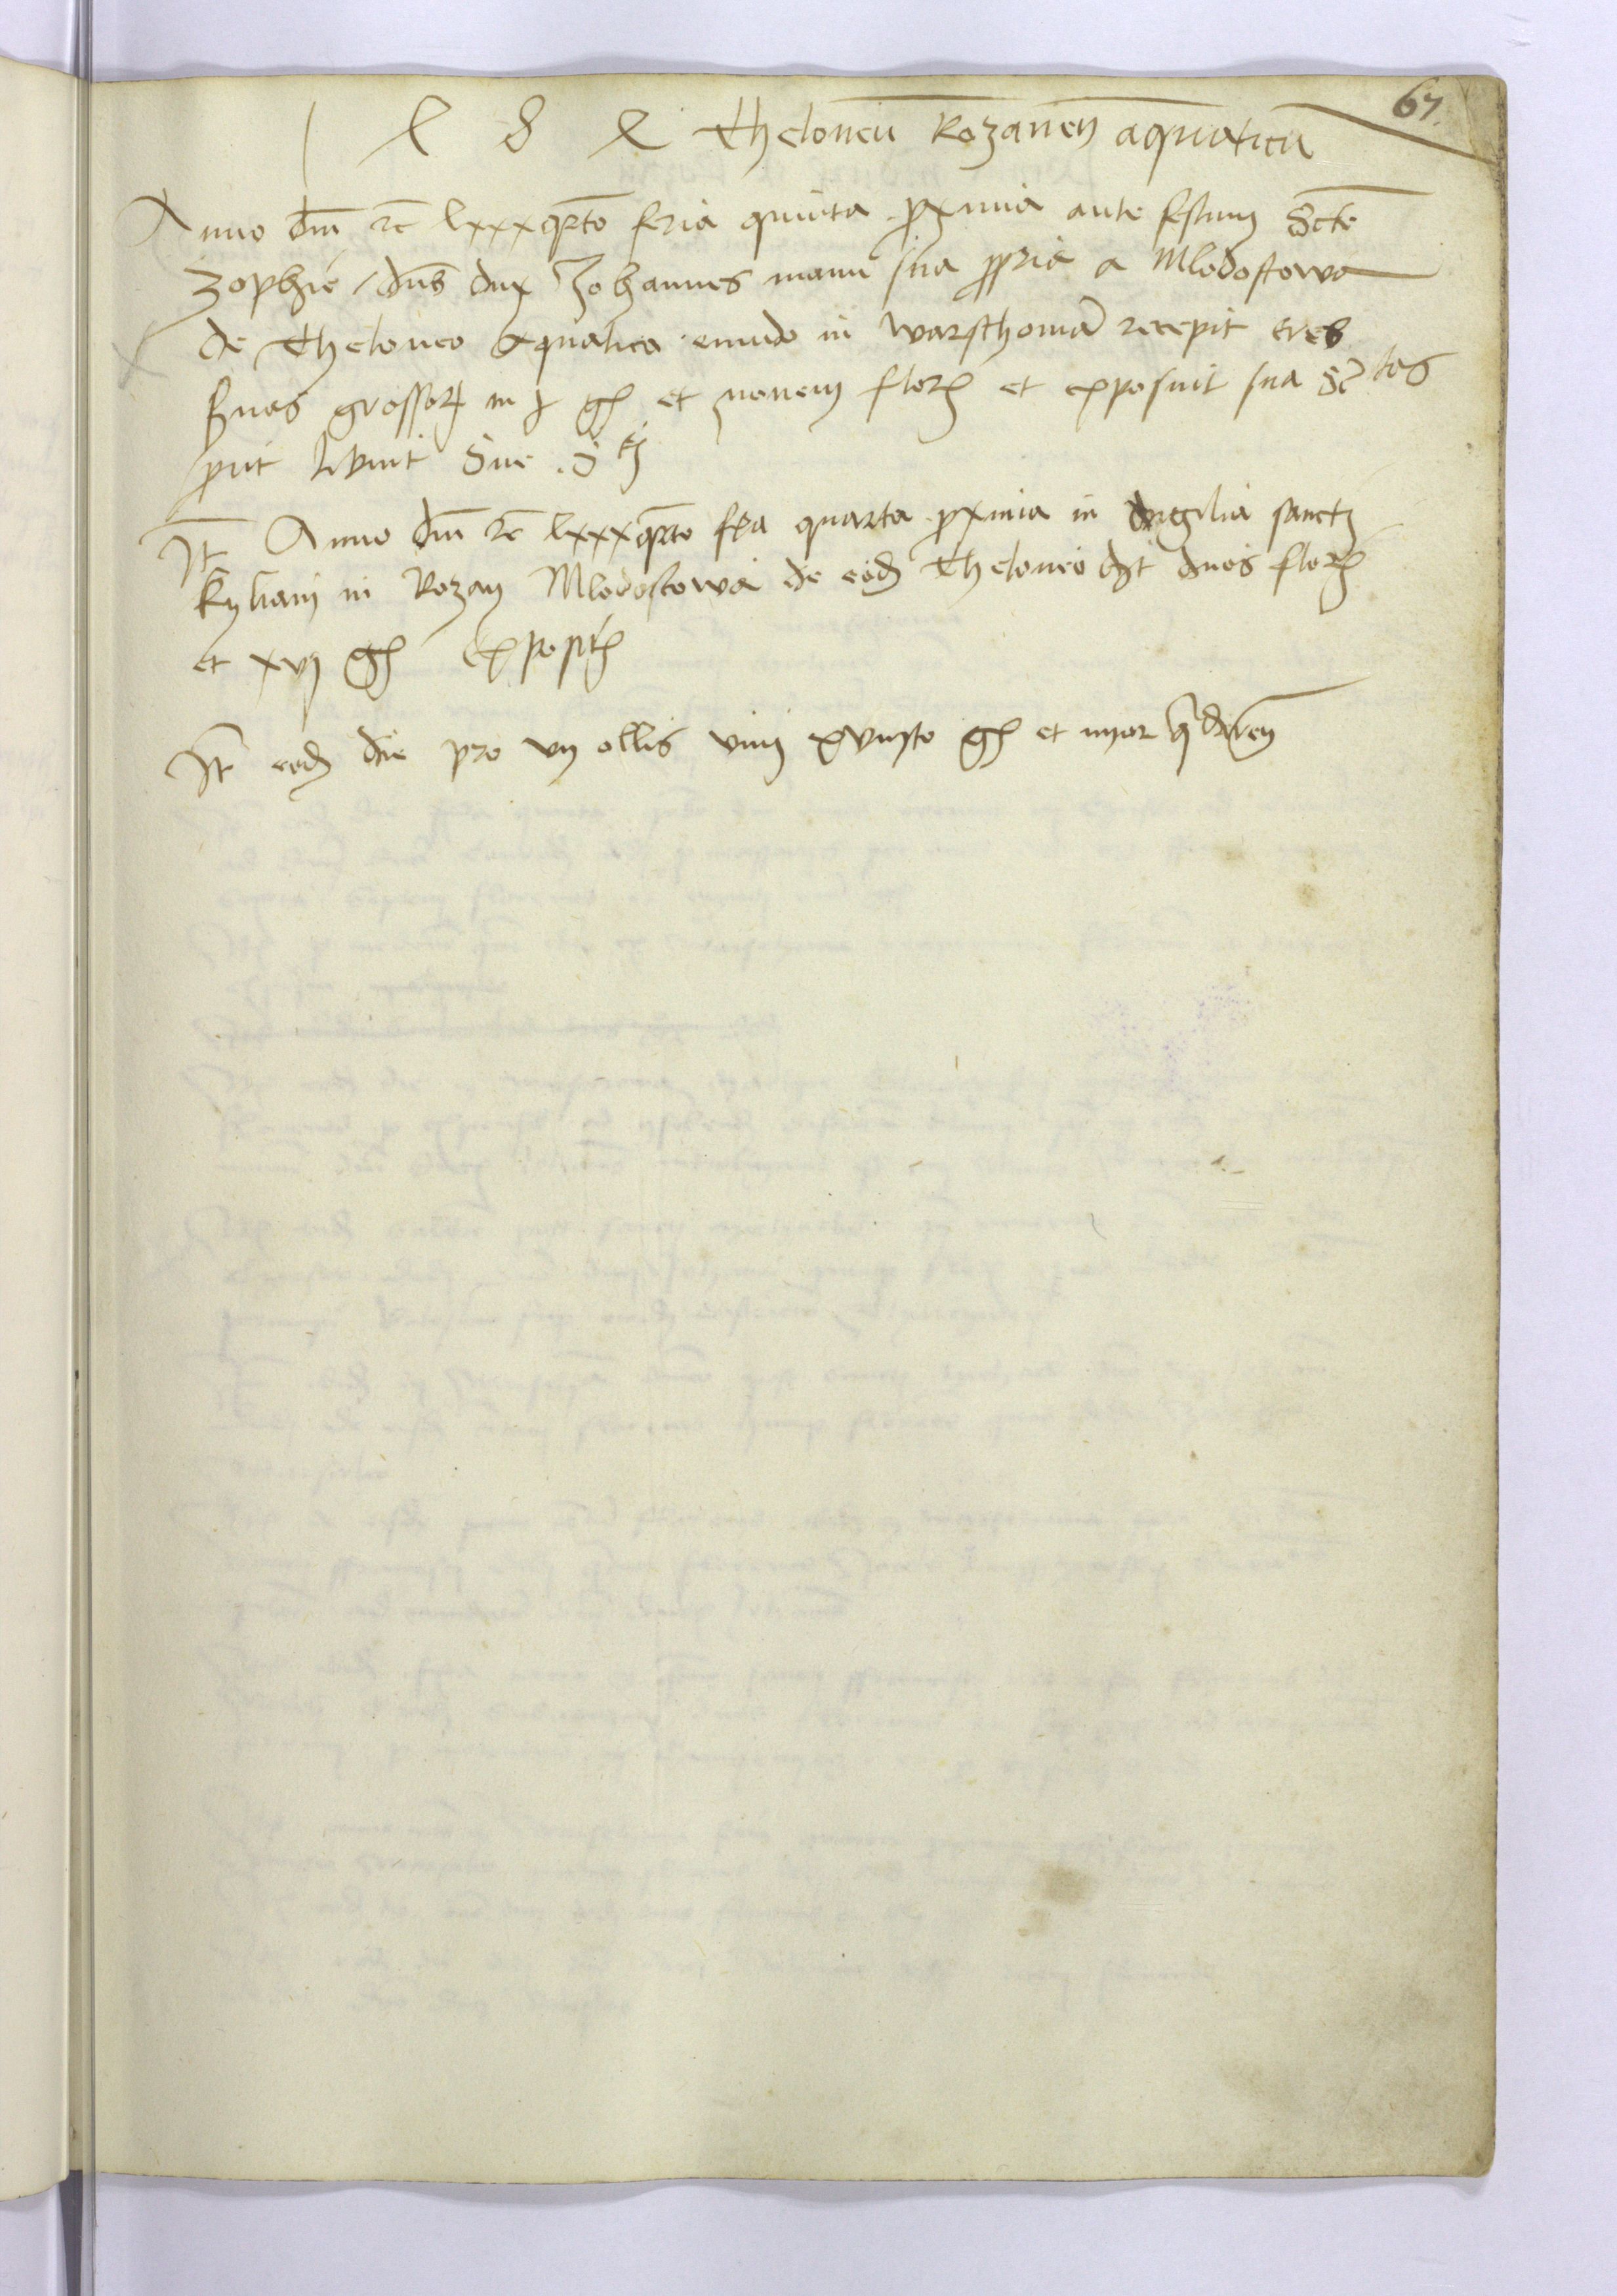 67.
1 4 8 4 Theloneu Rozanen aquaticu
Anno dni rc lxxxqrto feria quinta proxima ante festum Scte
Zophie / dns dux Johannes manu sua ppria a Mlodostowa
de Theloneo Aquatico eundo in Warschouia recepit tres
sxnas grossor in gs et nonem flor et exposuit sua Sctas
prout libuit Sue S tj
It Anno dni rc lxxxqrto fra quarta proxima in vigilia sanctj
kyliani in Rozan Mlodostowa de eod Theloneo dedit duos flor
et xvj gs Expositj
It eod die pro vij ollis vinj gs et